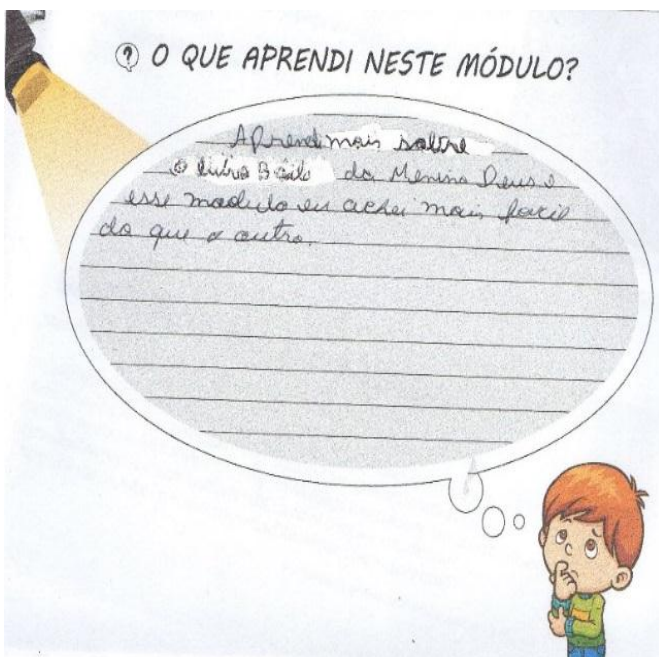 ? O QUE APRENDI NESTE MÓDULO?
Aprendi mais sobre
o livro B do Menino Deus e
esse modulo eu achei mais facil
do que o outro.